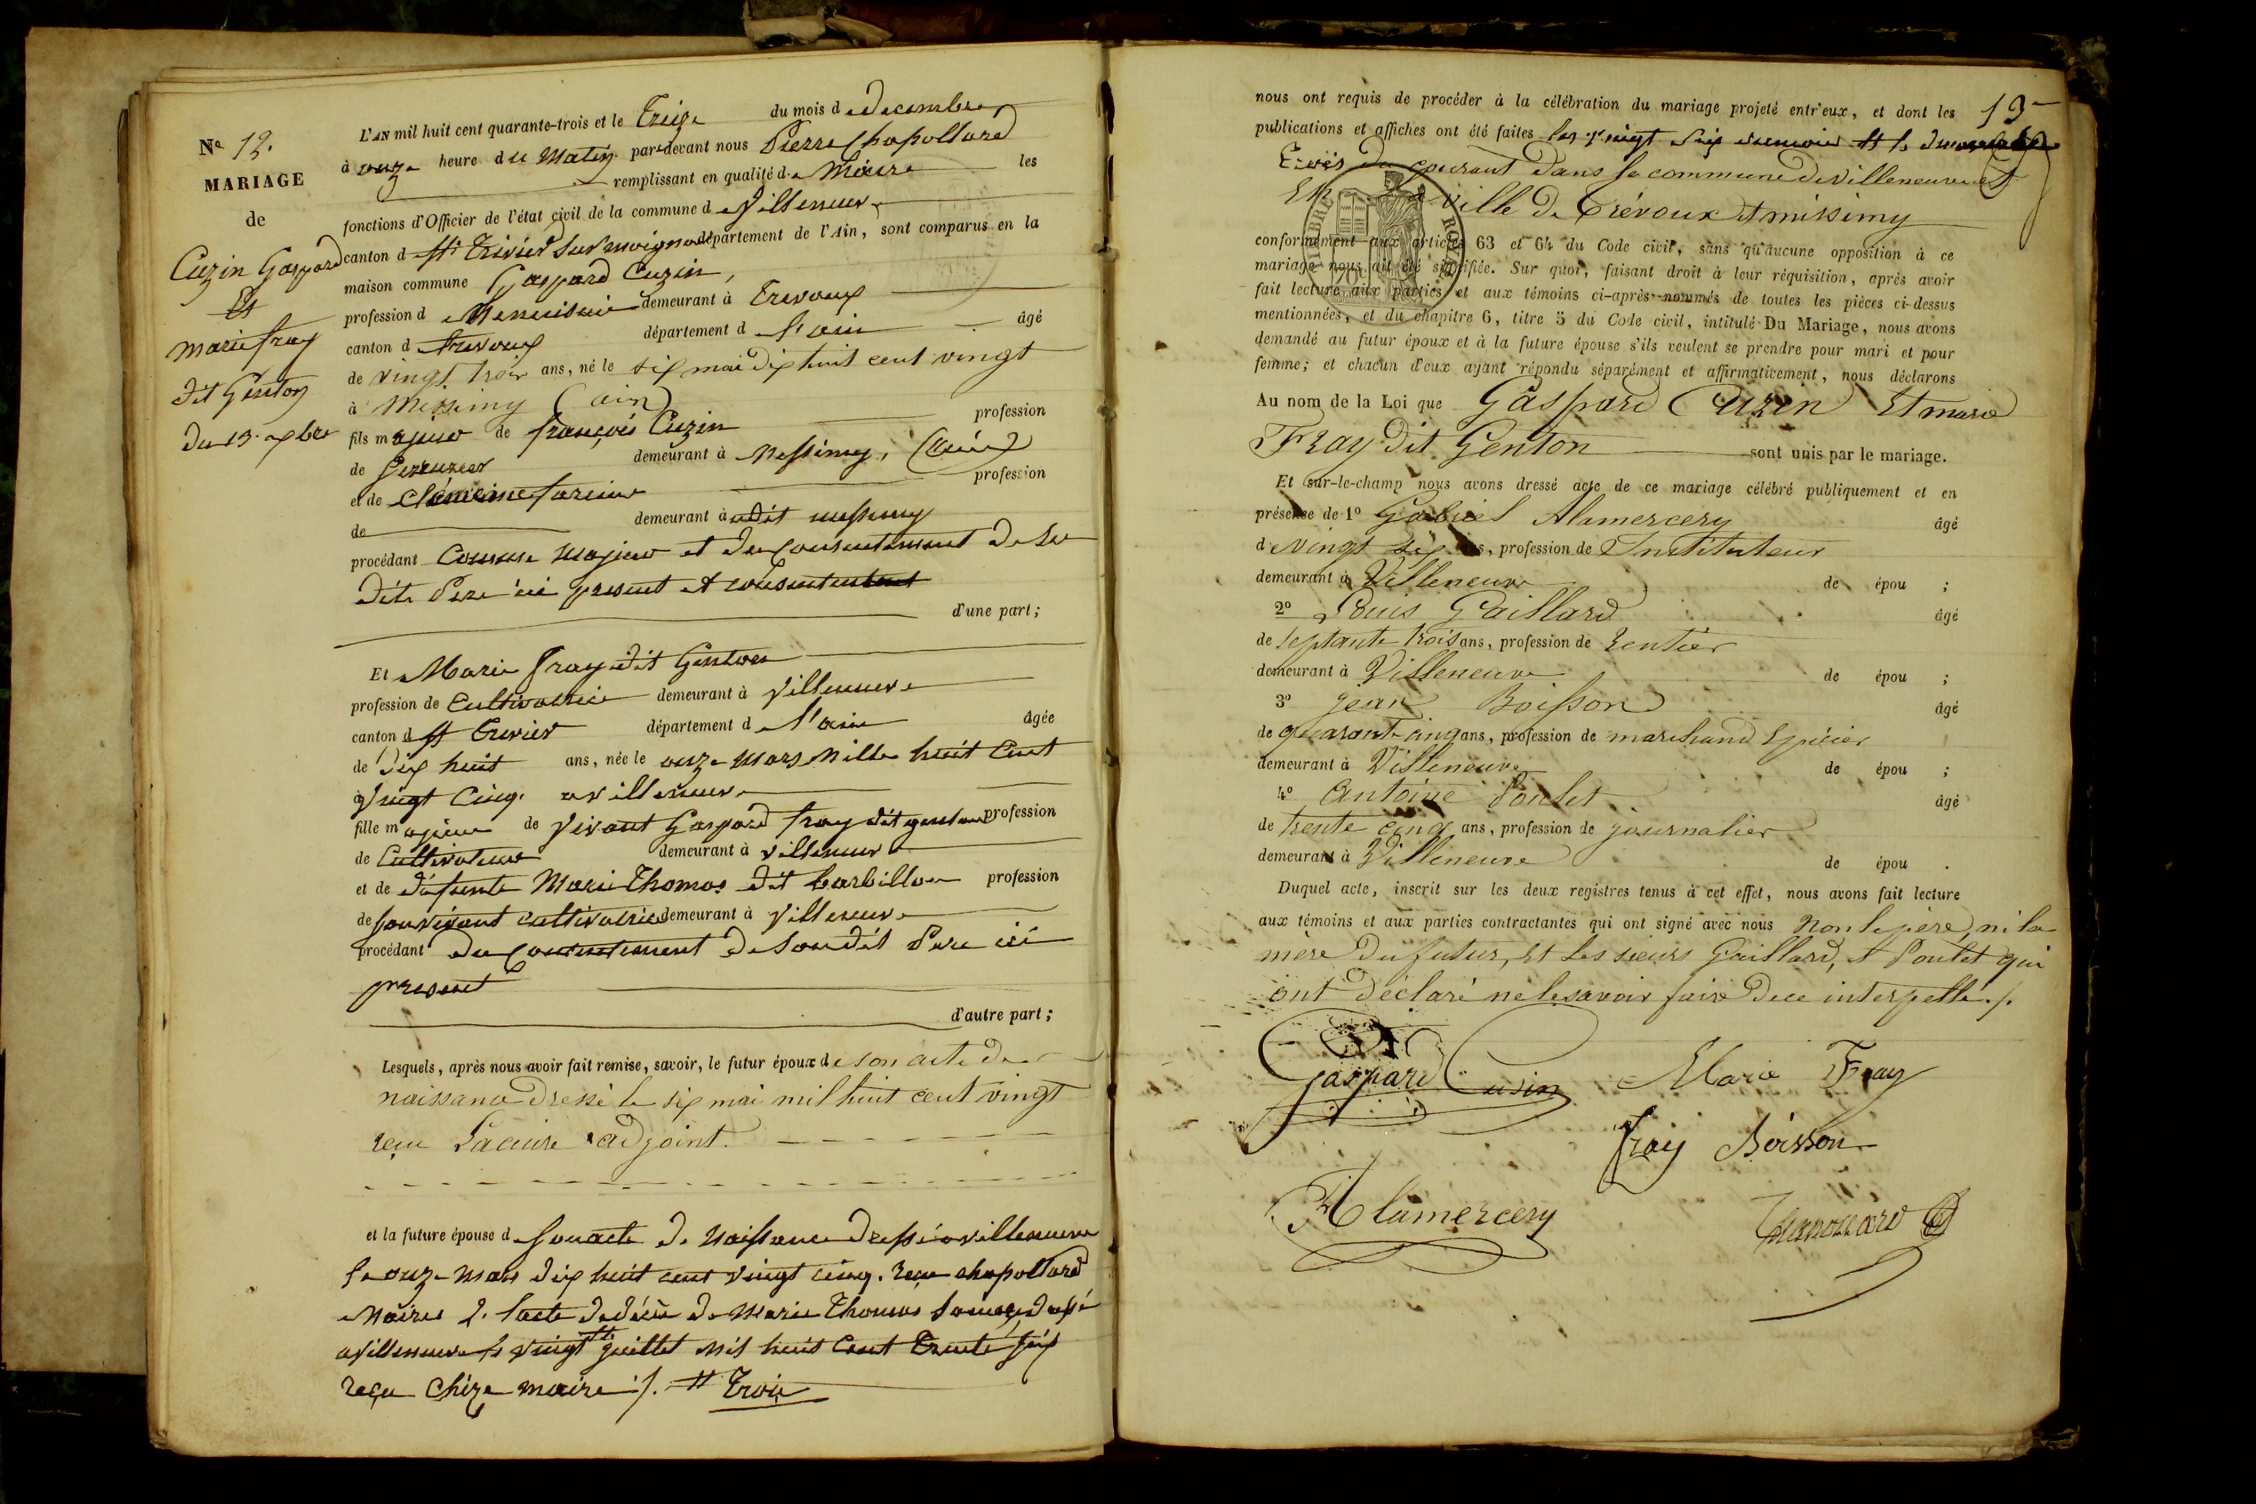 Nº 12.
MARIAGE
de
Cuzin Gaspard
Et
marie fray
dit Genton
du 13 xbre
L'AN mil huit cent quarante-trois et le Treize du mois de decembre
à onze heure du Matin par-devant nous Pierre Chapollard
remplissant en qualité de Maire les
fonctions d'Officier de l'état civil de la commune de Villeneuve
canton de St Trivier sur moignans département de l'Ain, sont comparus en la
maison commune Gaspard Cuzin,
profession de Menuisier demeurant à Trevoux
canton de trevoux département de l'ain âgé
de vingt trois ans, né le six mai dix huit cent vingt
à Messimy (ain)
fils majeur de françois Cuzin profession
de demeurant à Messimy, (ain)
et de profession
de demeurant à udit messimy
procédant comme majeur et du consentement de ses
dits Pere ici present et consentent
d'une part;
Et Marie fray dit Genton
profession de Cultivatrice demeurant à Villeneuve
canton de St Trivier département de l'ain âgée
de Dix huit ans, née le onze Mars Mille huit Cent
Vingt Cinq. a villeneuve
fille majeure de Vivant Gaspard fray dit genton profession
de Cultivateur demeurant à villeneuve
et de défunte Marie Thomas dit barbillon profession
de Son vivant cultivatrice demeurant à Villeneuve
procédant du Consentement de Son dit Pere ici
present
d'autre part;
Lesquels, après nous avoir fait remise, savoir, le futur époux de son acte de
naissance dressé le six mai mil huit cent vingt
reçu adjoint.
et la future épouse de Son acte de Naissance dressé a villeneuve
le onze Mars dix huit cent vingt cinq. reçu chapollard
Maire 2. l'acte de décès de Marie Thomas dressé
a villeneuve le vingt juillet mil huit Cent Trente
reçu Chize maire ./. Trois
13
nous ont requis de procéder à la célébration du mariage projeté entr'eux, et dont les
publications et affiches ont été faites les vingt six et le dimanche
Trois du courant Dans la commune de villeneuve et
En la ville de Trévoux et missimy
conformément aux articles 63 et 64 du Code civil, sans qu'aucune opposition à ce
mariage nous ait été signifiée. Sur quoi, faisant droit à leur réquisition, après avoir
fait lecture aux parties et aux témoins ci-après nommés de toutes les pièces ci-dessus
mentionnées, et du chapitre 6, titre 5 du Code civil, intitulé Du Mariage, nous avons
demandé au futur époux et à la future épouse s'ils veulent se prendre pour mari et pour
femme; et chacun d'eux ayant répondu séparément et affirmativement, nous déclarons
Au nom de la Loi que Gaspard Cuzin Et marie
Fray dit Genton sont unis par le mariage.
Et sur-le-champ nous avons dressé acte de ce mariage célébré publiquement et en
présence de 1º Gabriel Alamercery âgé
de vingt six ans, profession de Instituteur
demeurant à Villeneuve de épou ;
2º Louis Gaillard âgé
de septante trois ans, profession de Rentier
demeurant à Villeneuve de épou ;
3º jean Boisson âgé
de quarante cinq ans, profession de marchand Epicier
demeurant à Villeneuve de épou ;
4º Antoine Poulet âgé
de trente cinq ans, profession de journalier
demeurant à Villeneuve de épou .
Duquel acte, inscrit sur les deux registres tenus à cet effet, nous avons fait lecture
aux témoins et aux parties contractantes qui ont signé avec nous Non le père, ni la
mère du futur, Et les sieurs Gaillard, et Poulet qui
ont déclaré ne le savoir faire de ce interpellé ./.
Gaspard Cusin Marie Fray
fray Boisson
Alamercery Chapollard